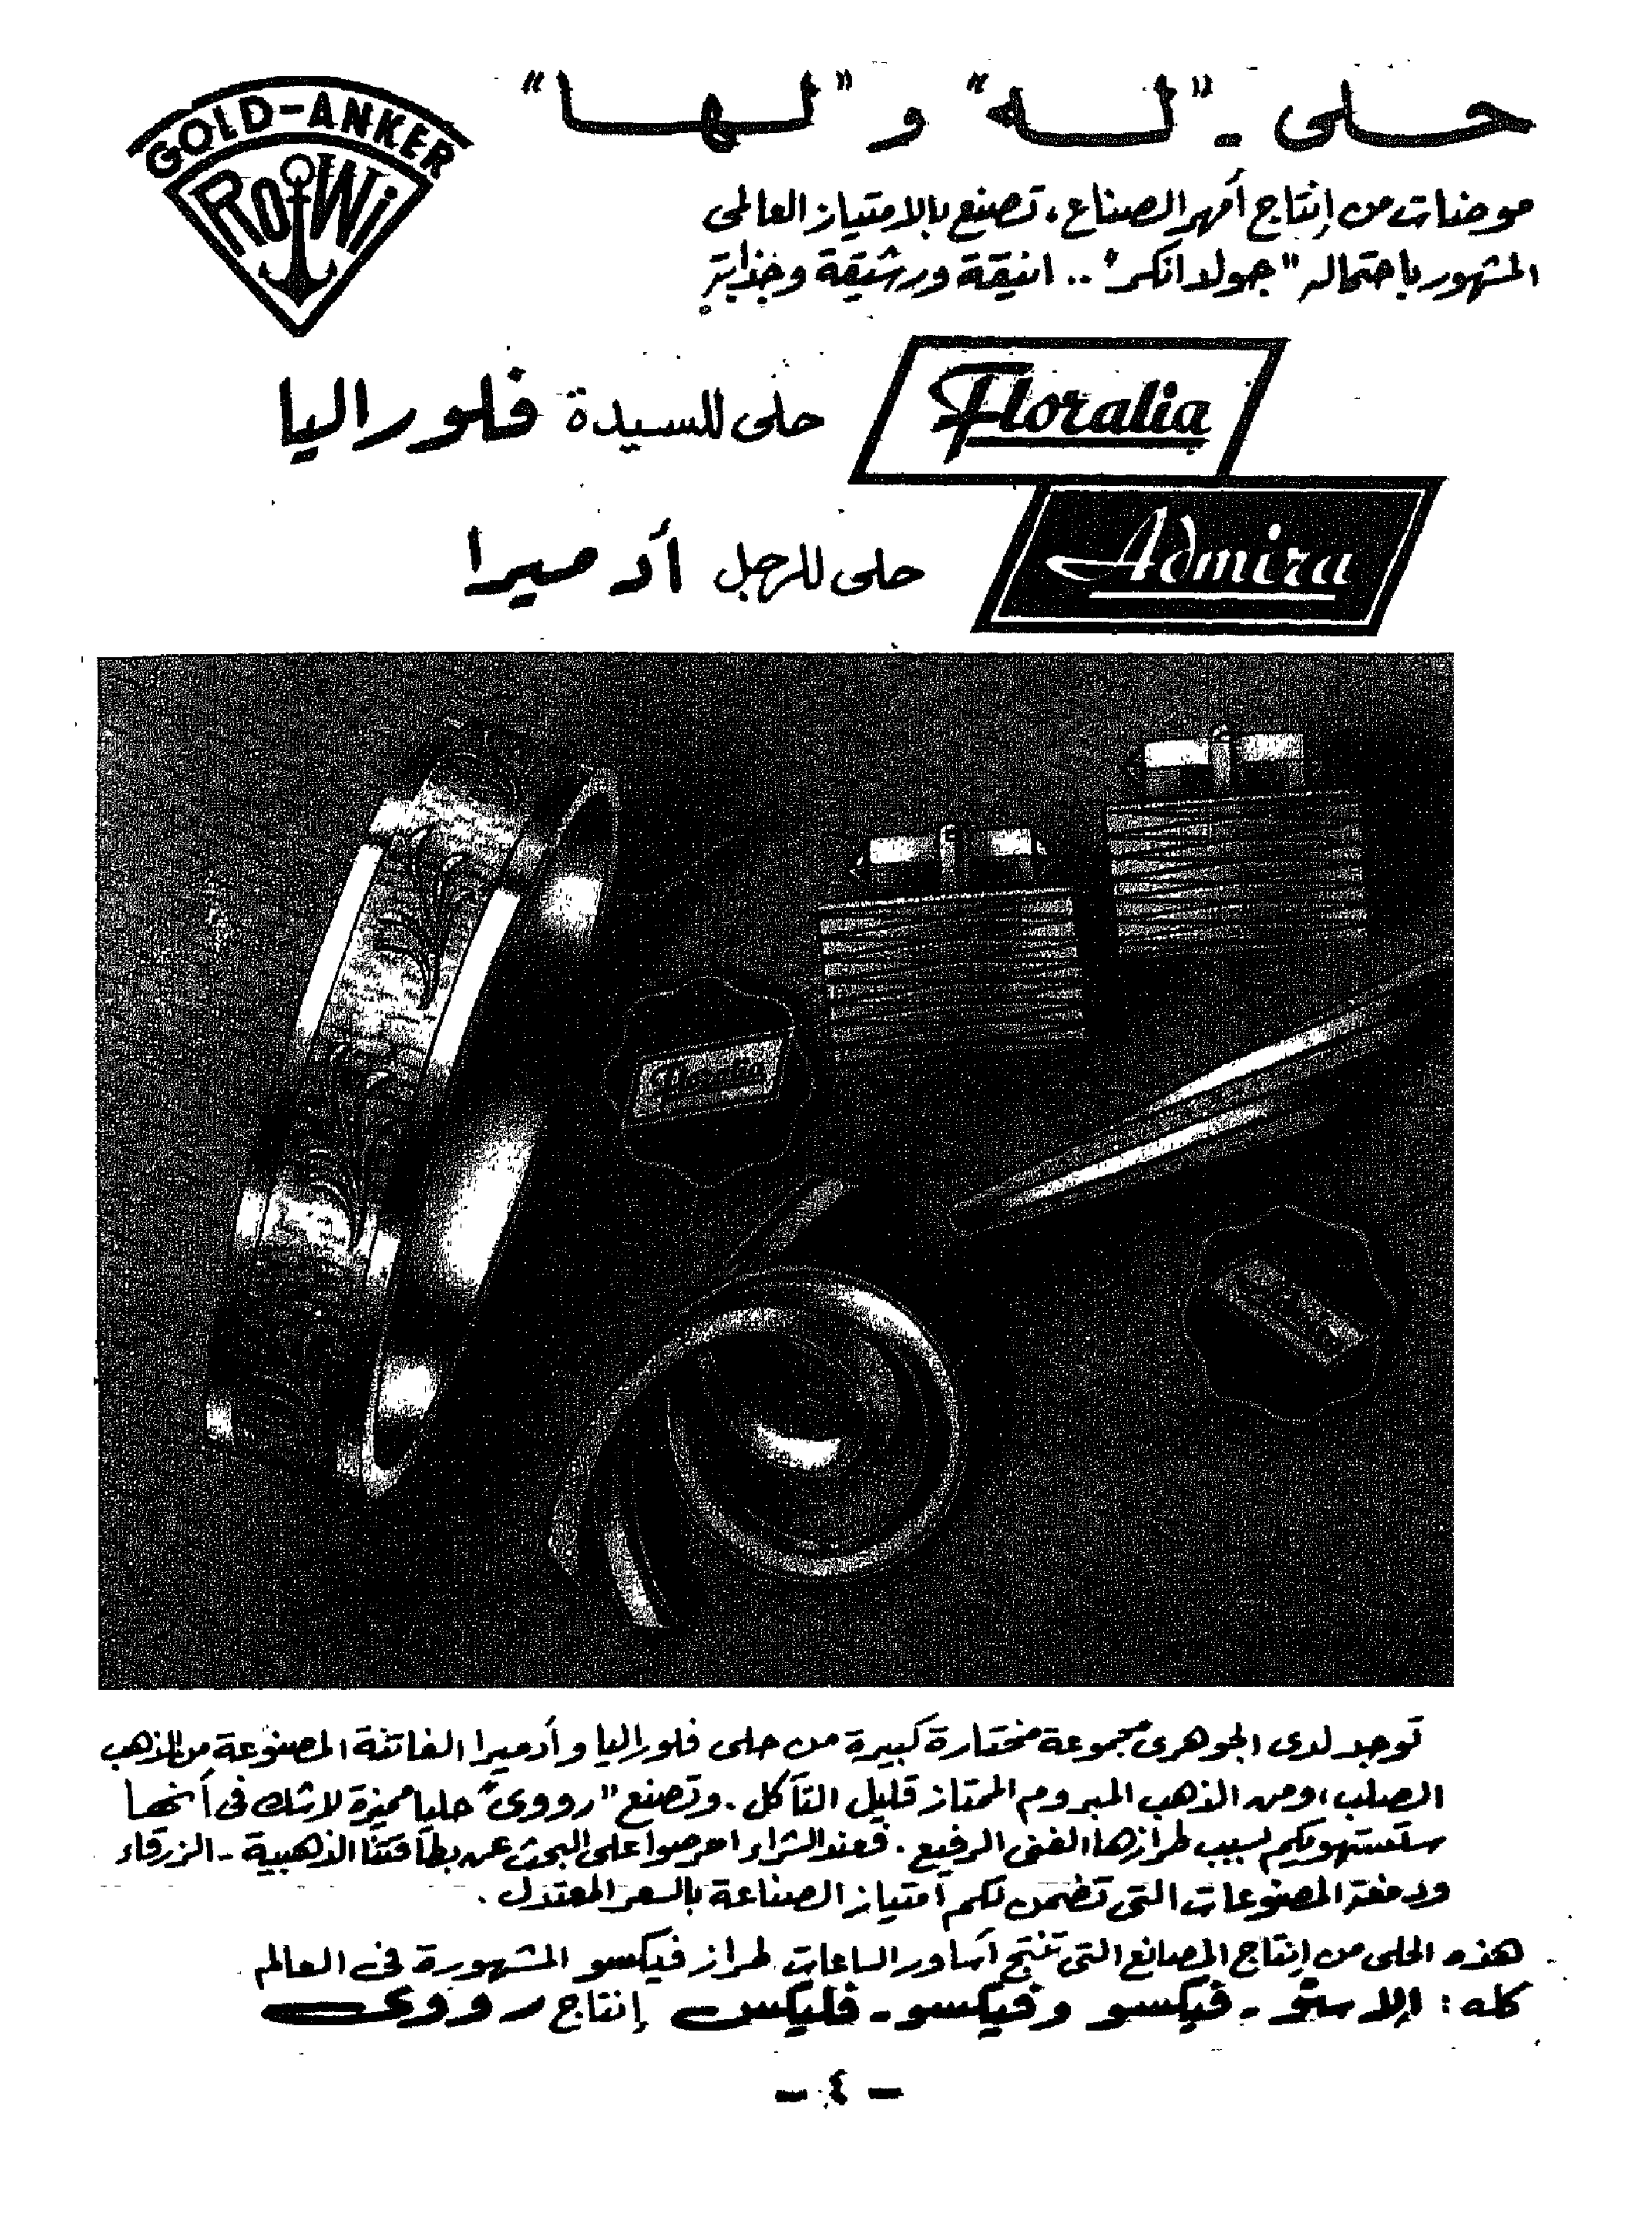 حلى - "له" و "لها"
GOLD-ANKER
RoWi
موضات من إنتاج أمهر الصناع، تصنع بالامتياز العالمى
المشهور باحتماله "جولد انكر" .. انيقة ورشيقة وجذابة
Floralia
حلى للسيدة فلوراليا
Admira
حلى للرجل أدميرا
Floralia
توجد لدى الجوهرى مجموعة مختارة كبيرة من حلى فلوراليا وأدميرا الفاتنة المصنوعة من الذهب
الصلب، ومن الذهب المبروم الممتاز قليل التآكل. وتصنع "رووى" حليا مميزة لاشك فى أنها
ستستهويكم بسبب طرازها الفنى الرفيع. فعند الشراء احرصوا على البحث عن بطاقتنا الذهبية - الزرقاء
ودمغة المصنوعات التى تضمن لكم أمتياز الصناعة بالسعر المعتدل.
هذه الحلى من إنتاج المصانع التى تنتج أساور الساعات طراز فيكسو المشهورة فى العالم
كله: إلاستو - فيكسو وفيكسو - فليكس إنتاج رووى
- ٤ -